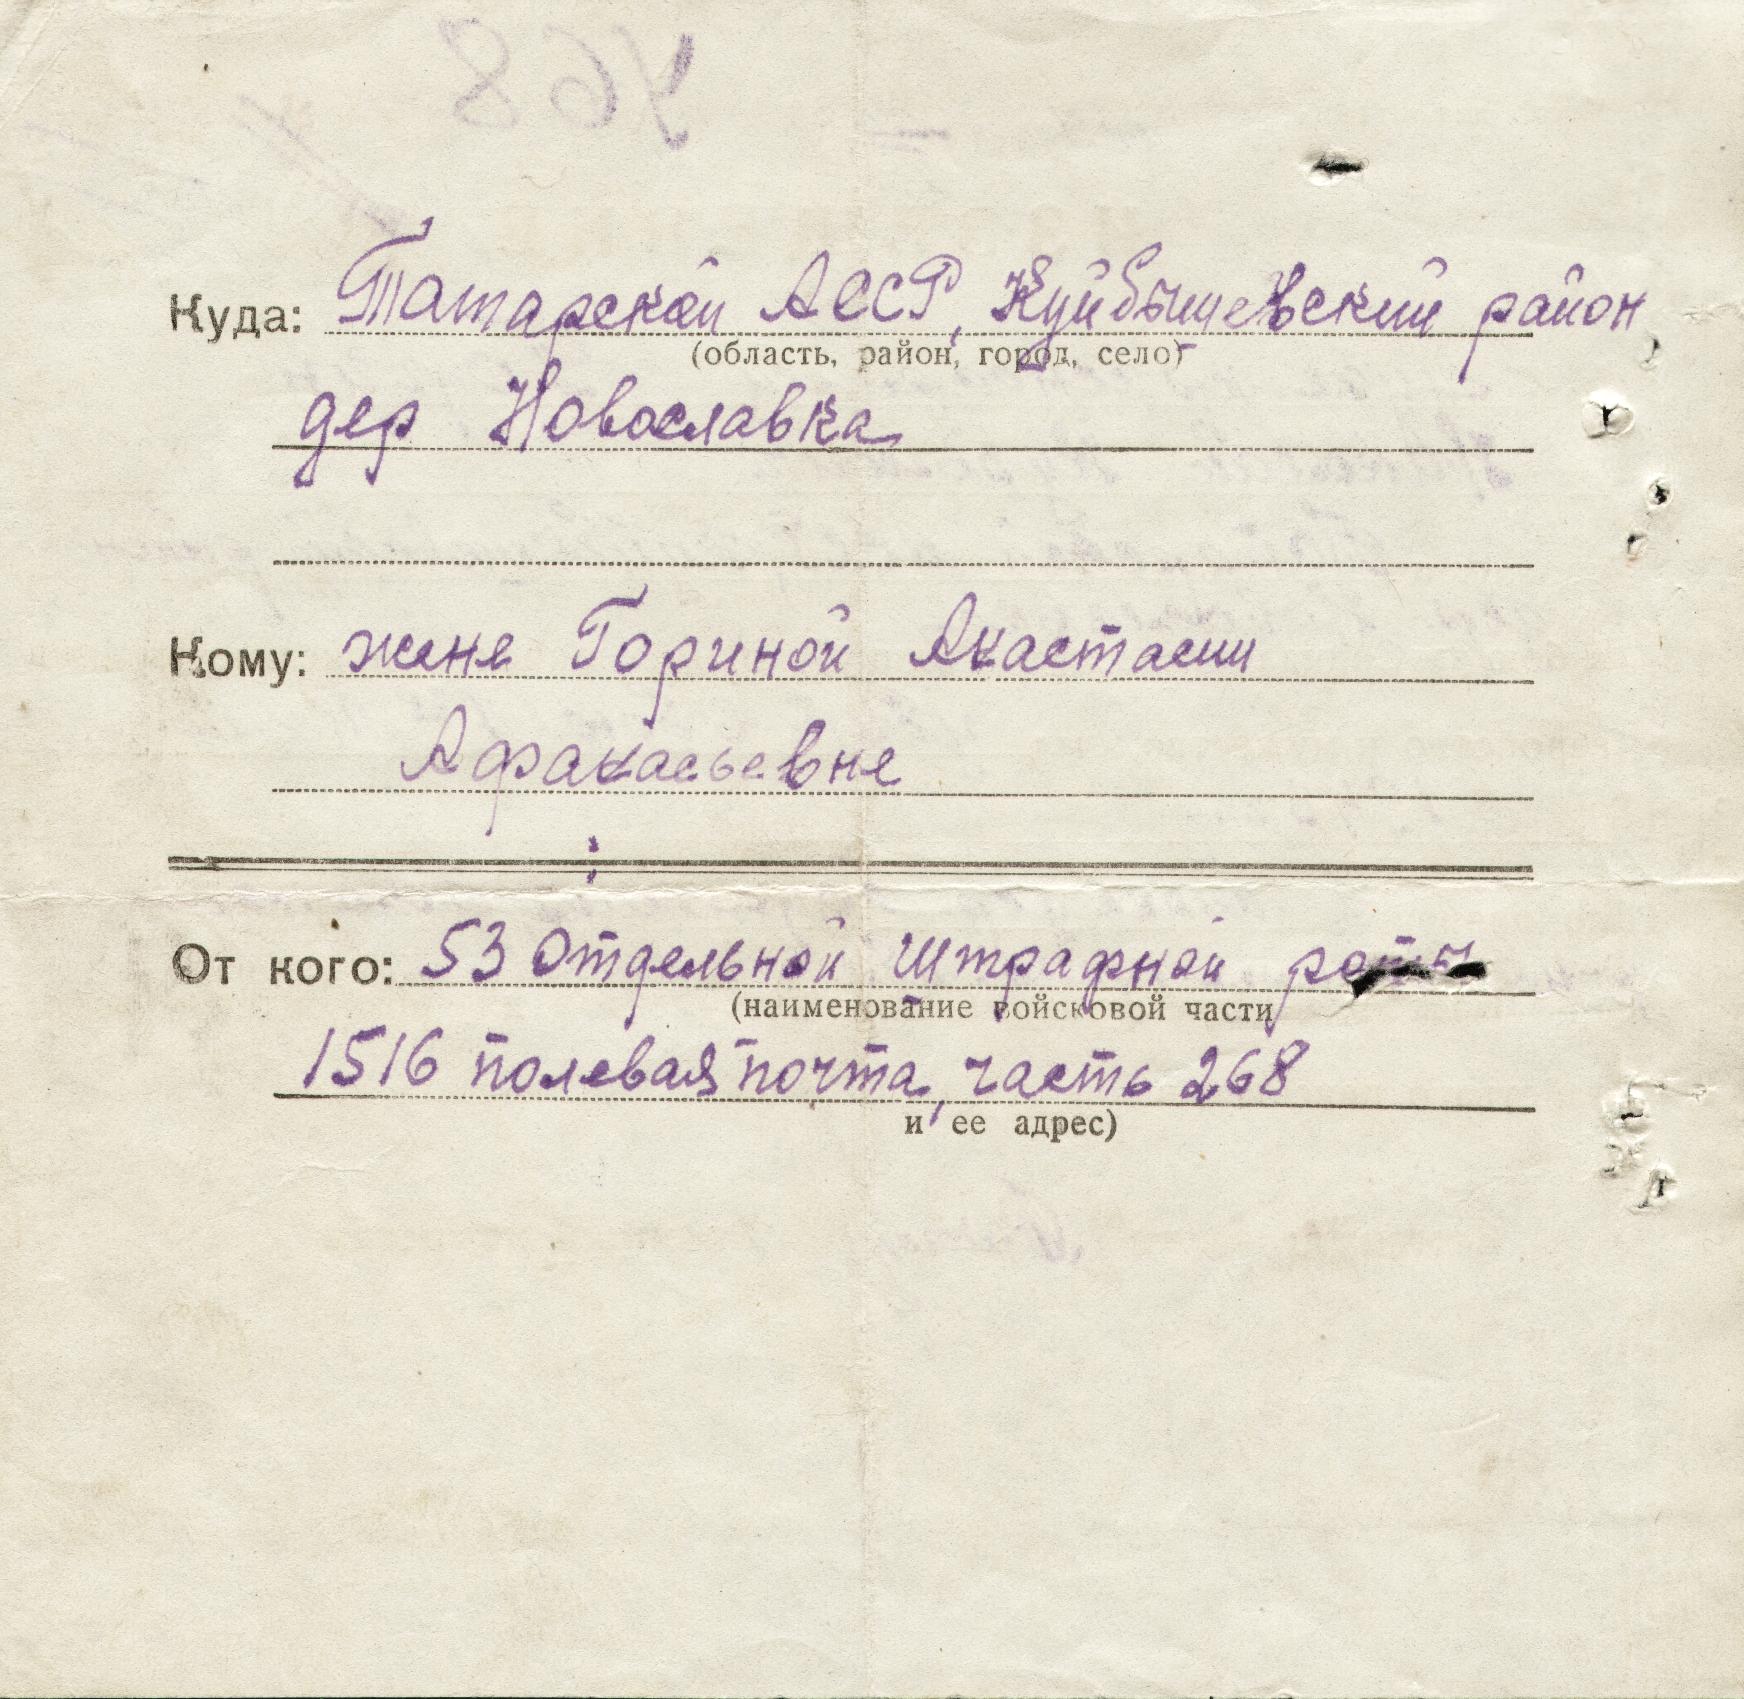 Куда: Татарской АССР, Куйбышевский район
(область, район, город, село)
дер Новославка
Кому: жене Гориной Анастасии
Афанасьевне
От кого: 53 Отдельной Штрафной роты
(наименование войсковой части
1516 полевая почта, часть 268
и ее адрес)